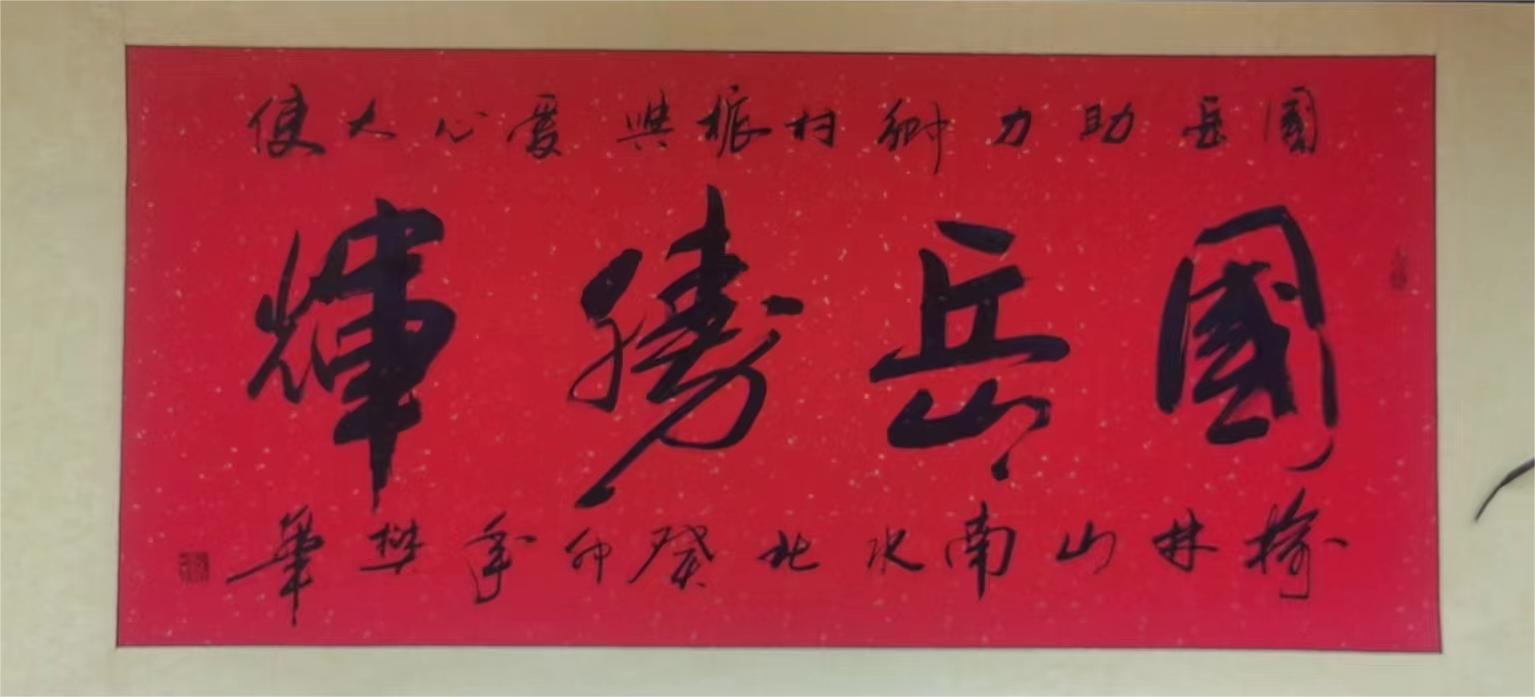 國岳助力鄉村振興愛心大使
國岳勝輝
榆林山南水北癸卯年樊華